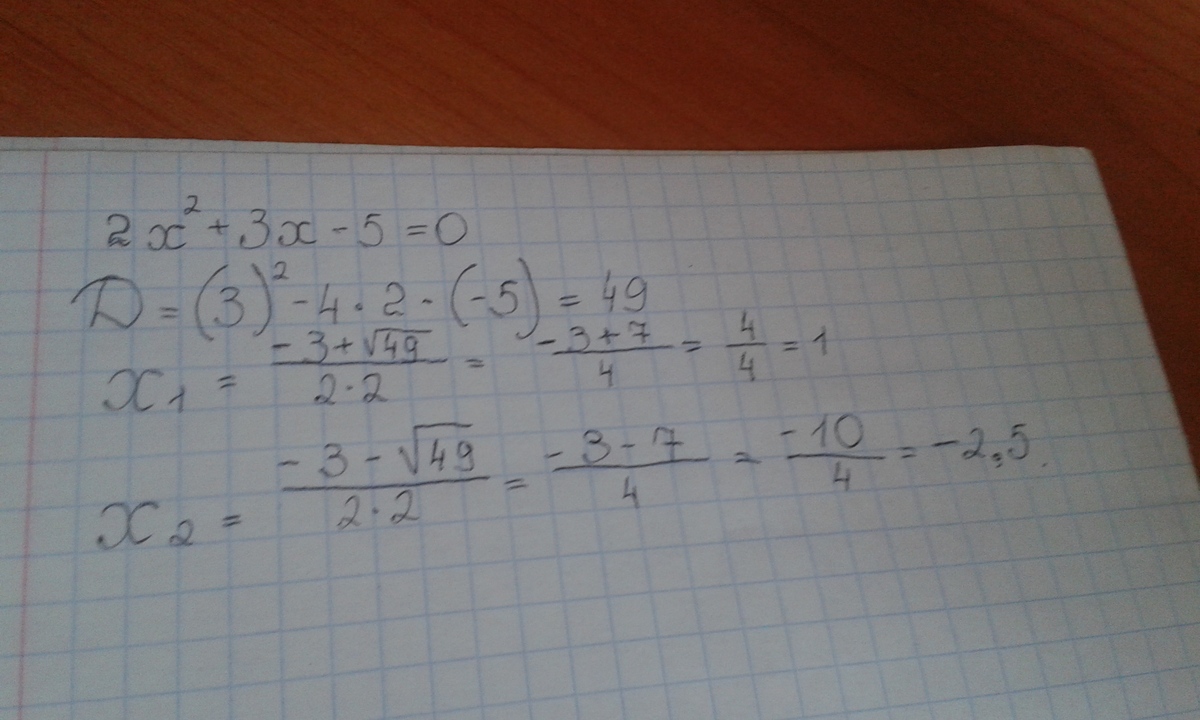 2x² + 3x - 5 = 0
D = (3)² - 4 · 2 · (-5) = 49
x₁ = (-3 + √49)/(2 · 2) = (-3 + 7)/4 = 4/4 = 1
x₂ = (-3 - √49)/(2 · 2) = (-3 - 7)/4 = (-10)/4 = -2,5.